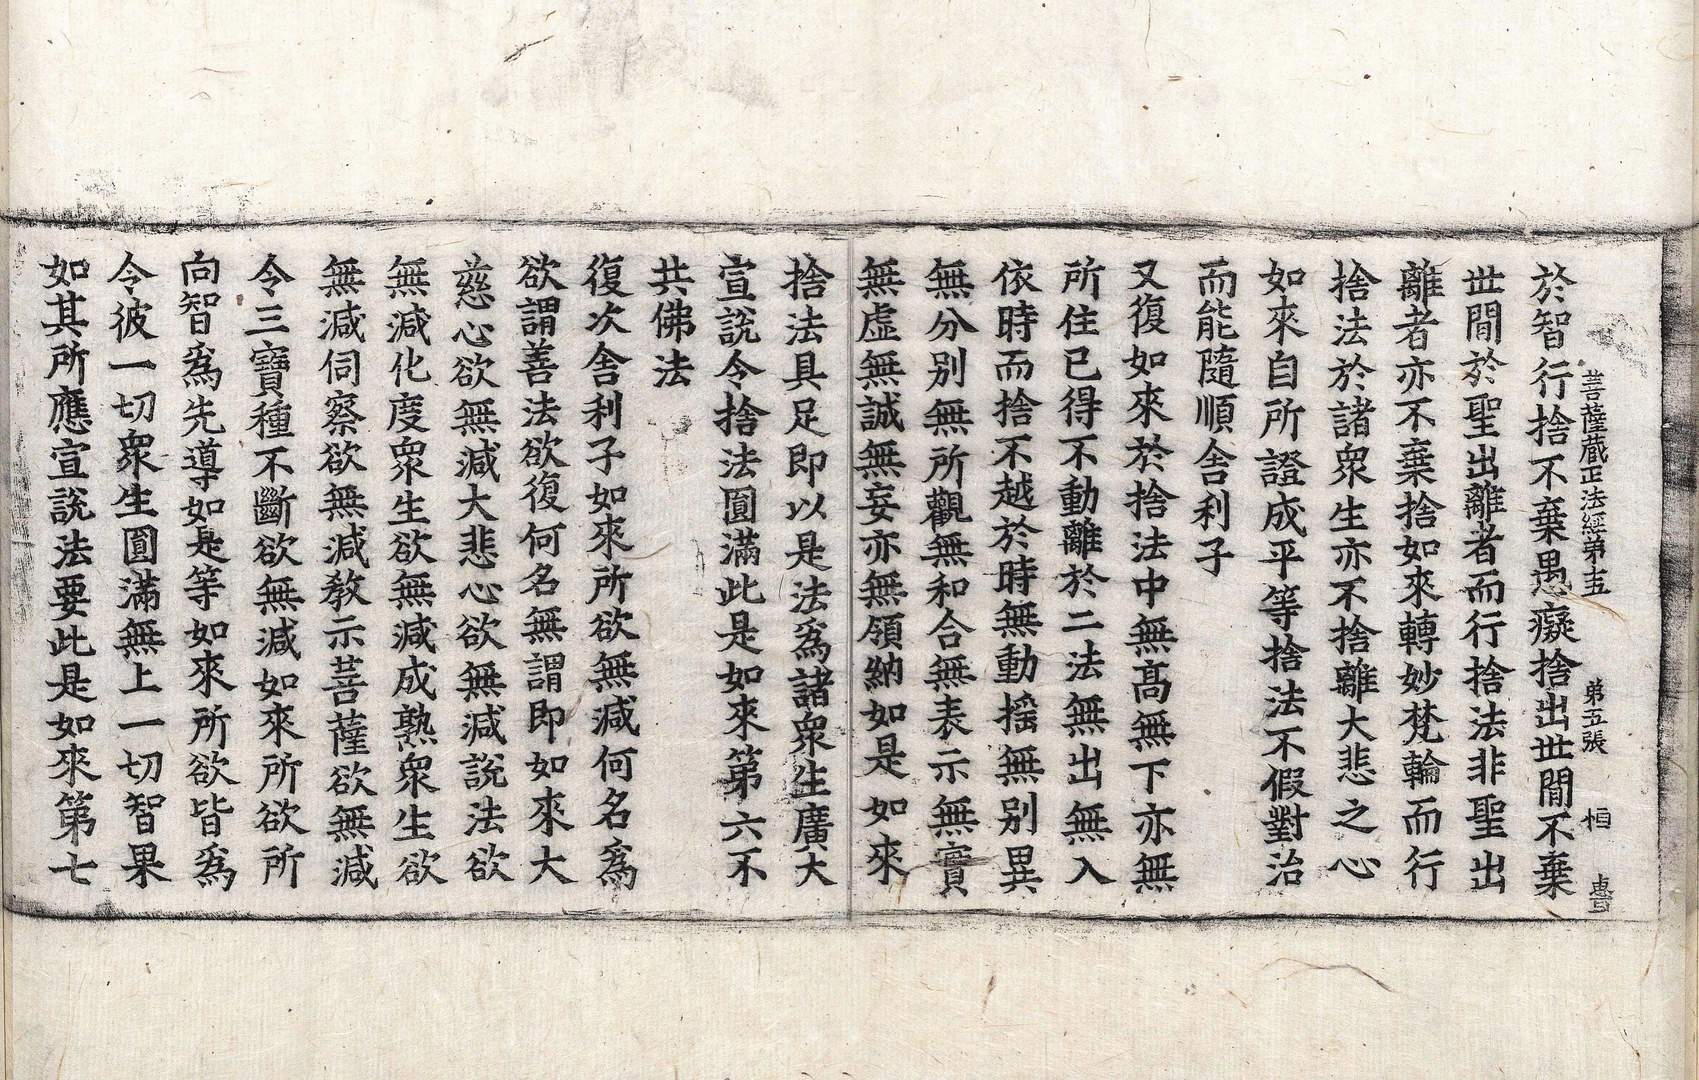 菩薩藏正法經第十五　第五張　恒
於智行捨不棄愚癡捨出世間不棄
世間於聖出離者而行捨法非聖出
離者亦不棄捨如來轉妙梵輪而行
捨法於諸衆生亦不捨離大悲之心
如來自所證成平等捨法不假對治
而能隨順舍利子
又復如來於捨法中無高無下亦無
所住已得不動離於二法無出無入
依時而捨不越於時無動搖無別異
無分別無所觀無和合無表示無實
無虛無誠無妄亦無領納如是如來
捨法具足即以是法爲諸衆生廣大
宣說令捨法圓滿此是如來第六不
共佛法
復次舍利子如來所欲無減何名爲
欲謂善法欲復何名無謂即如來大
慈心欲無減大悲心欲無減說法欲
無減化度衆生欲無減成熟衆生欲
無減伺察欲無減教示菩薩欲無減
令三寶種不斷欲無減如來所欲所
向智爲先導如是等如來所欲皆爲
令彼一切衆生圓滿無上一切智果
如其所應宣說法要此是如來第七